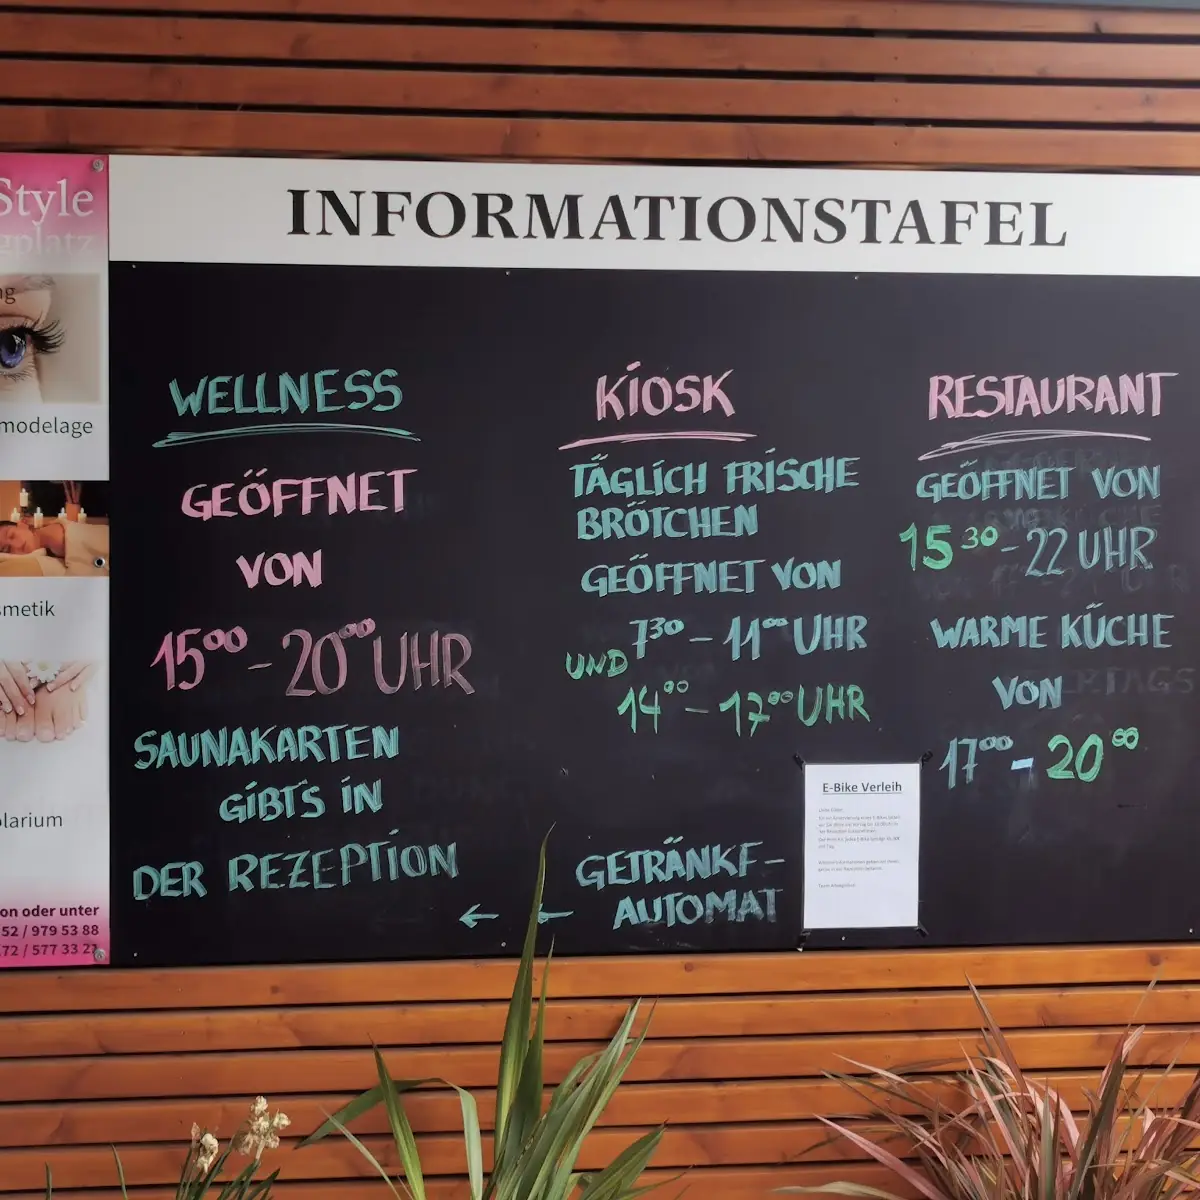 Style
gplatz
ng
modelage
smetik
olarium
on oder unter
52 / 979 53 88
72 / 577 33 21
INFORMATIONSTAFEL
WELLNESS
GEÖFFNET
VON
15⁰⁰ - 20⁰⁰ UHR
SAUNAKARTEN
GIBTS IN
DER REZEPTION
KIOSK
TÄGLICH FRISCHE
BRÖTCHEN
GEÖFFNET VON
7³⁰ - 11⁰⁰ UHR
UND
14⁰⁰ - 17⁰⁰ UHR
GETRÄNKE-
AUTOMAT
← ←
RESTAURANT
GEÖFFNET VON
15³⁰ - 22 UHR
WARME KÜCHE
VON
17⁰⁰ - 20⁰⁰
E-Bike Verleih